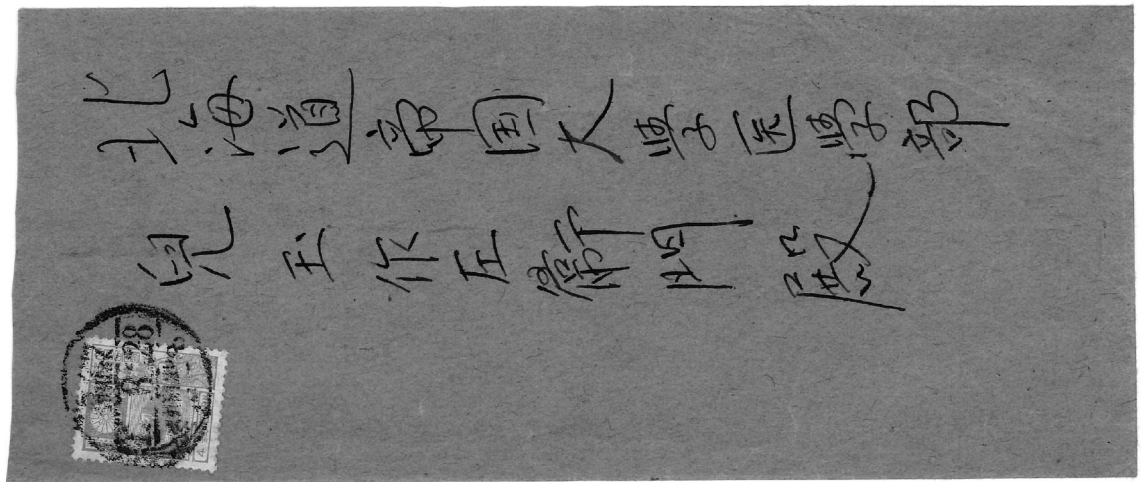 北海道帝国大學医學部
児玉作左衛門殿